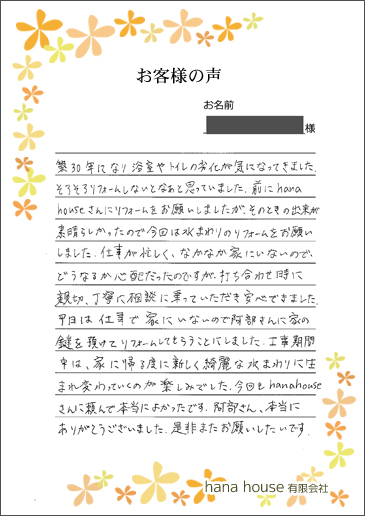 お客様の声
お名前
様
築30年になり浴室やトイレの劣化が気になってきました。
そろそろリフォームしないとなあと思っていました。前にhana
houseさんにリフォームをお願いしましたが、そのときの出来が
素晴らしかったので今回は水まわりのリフォームをお願い
しました。仕事が忙しく、なかなか家にいないので、
どうなるか心配だったのですが、打ち合わせ時に
親切、丁寧に相談に乗っていただき安心できました。
平日は仕事で家にいないので阿部さんに家の
鍵を預けてリフォームしてもらうことにしました。工事期間
中は、家に帰る度に新しく綺麗な水まわりに生
まれ変わっていくのが楽しみでした。今回もhanahouse
さんに頼んで本当によかったです。阿部さん、本当に
ありがとうございました。是非またお願いしたいです。
hana house 有限会社